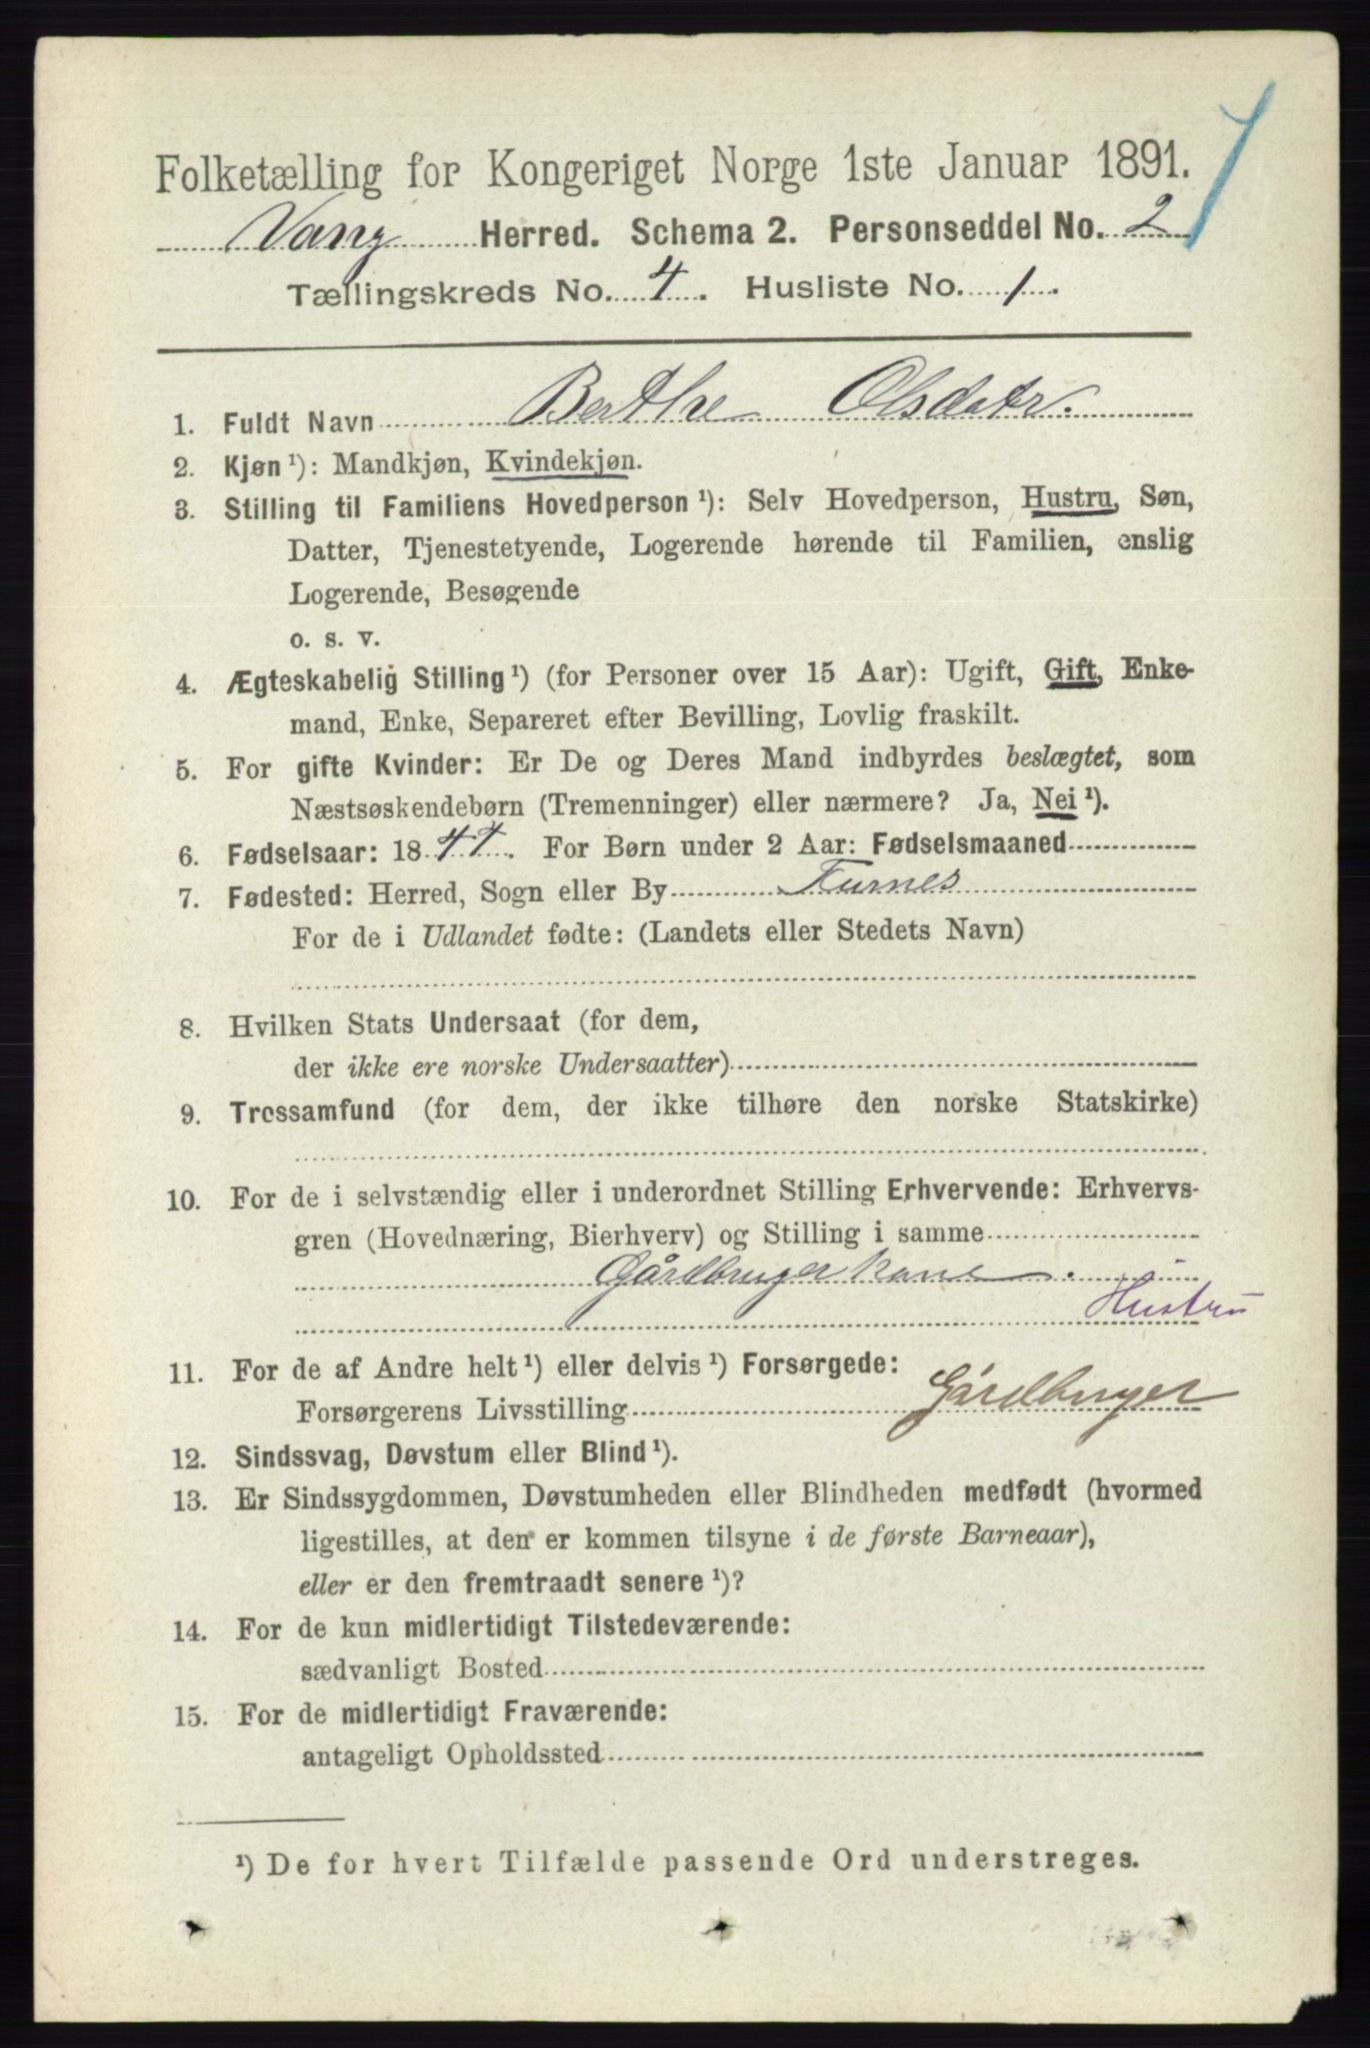 Folketælling for Kongeriget Norge 1ste Januar 1891.
Vang Herred. Schema 2. Personseddel No. 2
Tællingskreds No. 4. Husliste No. 1.
1. Fuldt Navn Berthe Olsdatr.
2. Kjøn ¹): Mandkjøn, Kvindekjøn.
3. Stilling til Familiens Hovedperson ¹): Selv Hovedperson, Hustru, Søn,
Datter, Tjenestetyende, Logerende hørende til Familien, enslig
Logerende, Besøgende
o. s. v.
4. Ægteskabelig Stilling ¹) (for Personer over 15 Aar): Ugift, Gift, Enke-
mand, Enke, Separeret efter Bevilling, Lovlig fraskilt.
5. For gifte Kvinder: Er De og Deres Mand indbyrdes beslægtet, som
Næstsøskendebørn (Tremenninger) eller nærmere? Ja, Nei ¹).
6. Fødselsaar: 18 For Børn under 2 Aar: Fødselsmaaned
7. Fødested: Herred, Sogn eller By Furnes
For de i Udlandet fødte: (Landets eller Stedets Navn)
8. Hvilken Stats Undersaat (for dem,
der ikke ere norske Undersaatter)
9. Trossamfund (for dem, der ikke tilhøre den norske Statskirke)
10. For de i selvstændig eller i underordnet Stilling Erhvervende: Erhvervs-
gren (Hovednæring, Bierhverv) og Stilling i samme
Gårdbruger kone.
Hustru
11. For de af Andre helt ¹) eller delvis ¹) Forsørgede:
Forsørgerens Livsstilling Gårdbruger
12. Sindssvag, Døvstum eller Blind ¹).
13. Er Sindssygdommen, Døvstumheden eller Blindheden medfødt (hvormed
ligestilles, at den er kommen tilsyne i de første Barneaar),
eller er den fremtraadt senere ¹)?
14. For de kun midlertidigt Tilstedeværende:
sædvanligt Bosted
15. For de midlertidigt Fraværende:
antageligt Opholdssted
¹) De for hvert Tilfælde passende Ord understreges.